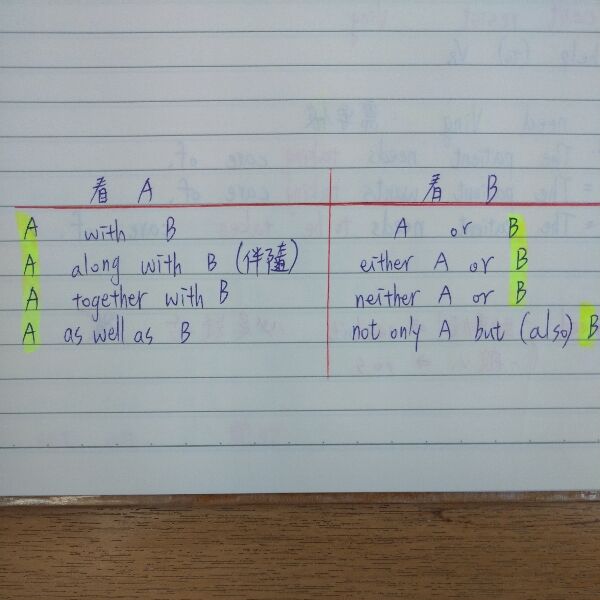 看 A
A with B
A along with B (伴隨)
A together with B
A as well as B
看 B
A or B
either A or B
neither A or B
not only A but (also) B